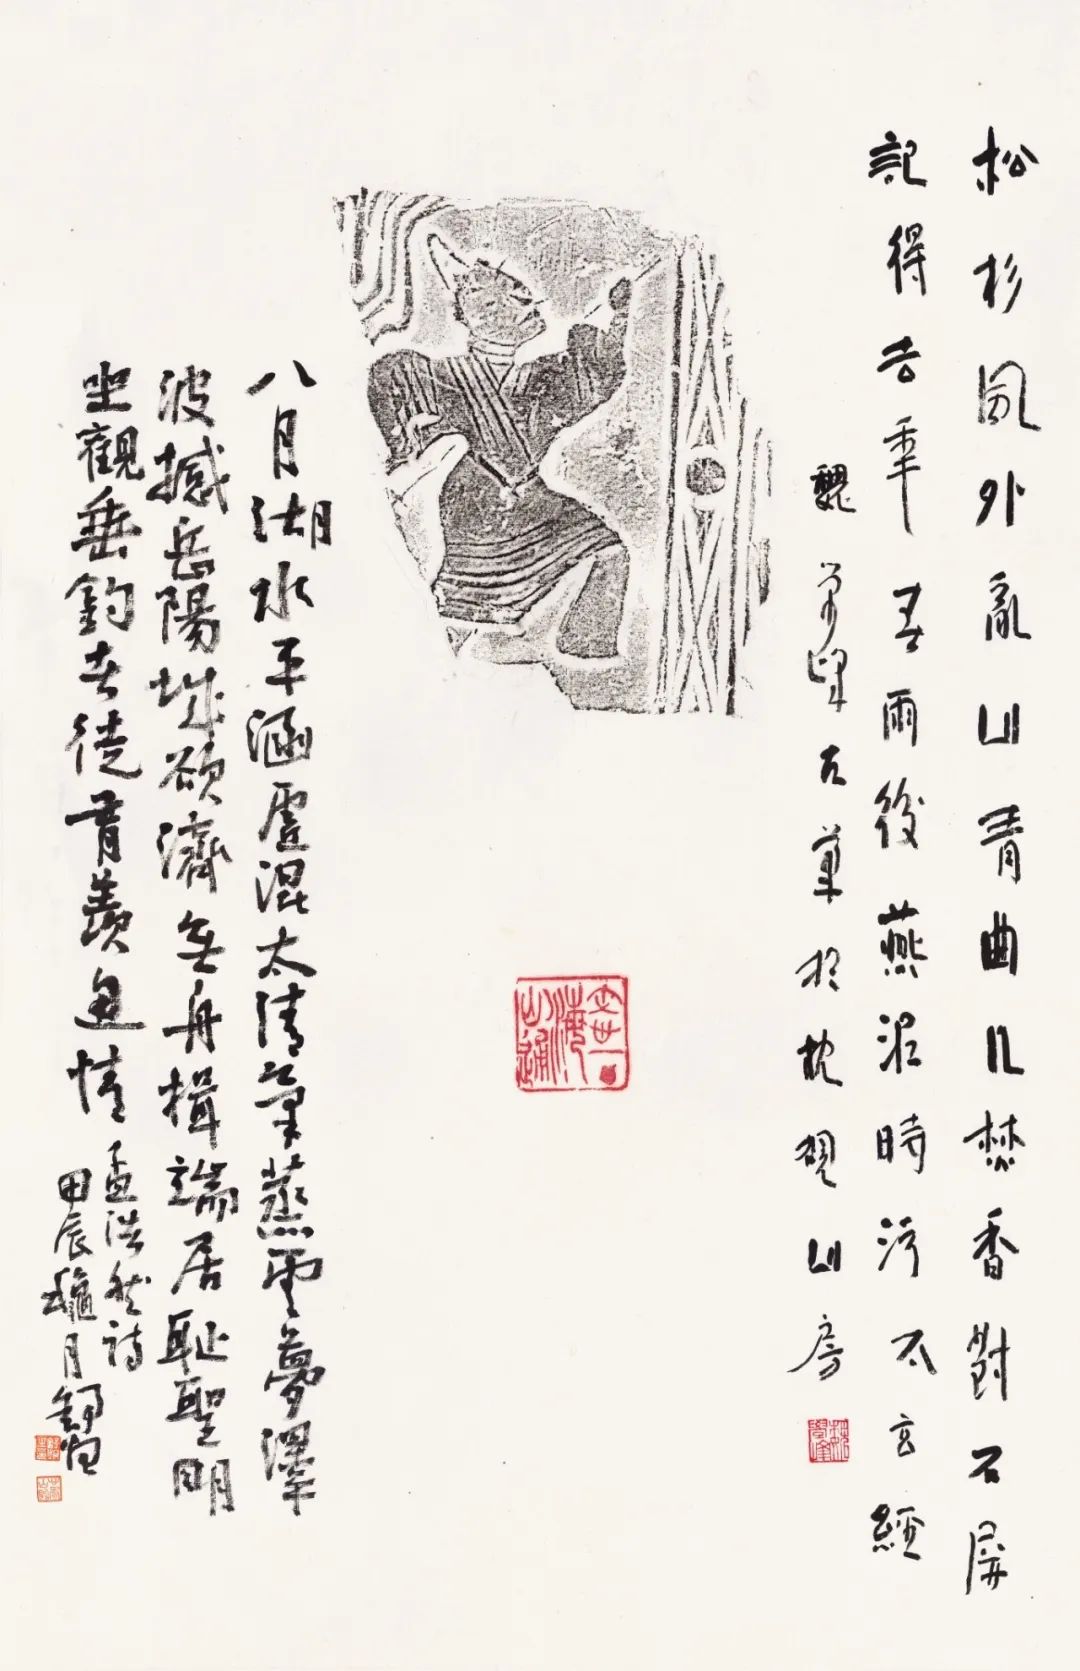 松杉風外亂山青曲几焚香對石屏
記得去年春雨後燕泥時污太玄經
魏於枕硯山房
八月湖水平涵虛混太清氣蒸雲夢澤
波撼岳陽城欲濟無舟楫端居耻聖明
坐觀垂釣者徒有羨魚情
孟浩然詩
甲辰龝月